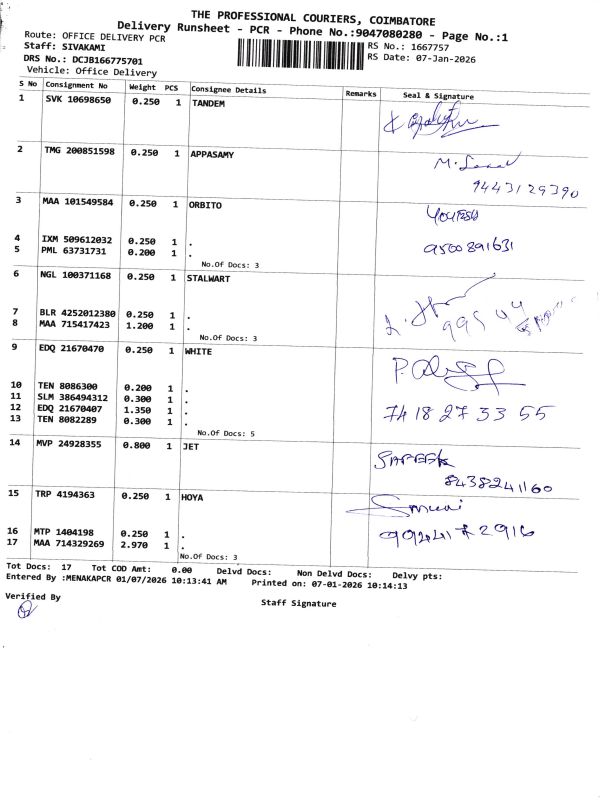 THE PROFESSIONAL COURIERS, COIMBATORE
Delivery Runsheet - PCR - Phone No.:9047080280 - Page No.:1
Route: OFFICE DELIVERY PCR
Staff: SIVAKAMI
DRS No.: DCJB166775701
Vehicle: Office Delivery
RS No.: 1667757
RS Date: 07-Jan-2026
S No Consignment No Weight PCS Consignee Details Remarks Seal & Signature
1 SVK 10698650 0.250 1 TANDEM
2 TMG 200851598 0.250 1 APPASAMY
9443129390
3 MAA 101549584 0.250 1 ORBITO
4 IXM 509612032 0.250 1 .
5 PML 63731731 0.200 1 . 9500891631
No.Of Docs: 3
6 NGL 100371168 0.250 1 STALWART
7 BLR 4252012380 0.250 1 .
8 MAA 715417423 1.200 1 .
No.Of Docs: 3
9 EDQ 21670470 0.250 1 WHITE
10 TEN 8086300 0.200 1 .
11 SLM 386494312 0.300 1 .
12 EDQ 21670407 1.350 1 . 74 18 27 33 55
13 TEN 8082289 0.300 1 .
No.Of Docs: 5
14 MVP 24928355 0.800 1 JET
8438241160
15 TRP 4194363 0.250 1 HOYA
16 MTP 1404198 0.250 1 .
17 MAA 714329269 2.970 1 .
No.Of Docs: 3
Tot Docs: 17 Tot COD Amt: 0.00 Delvd Docs: Non Delvd Docs: Delvy pts:
Entered By :MENAKAPCR 01/07/2026 10:13:41 AM Printed on: 07-01-2026 10:14:13
Verified By
Staff Signature